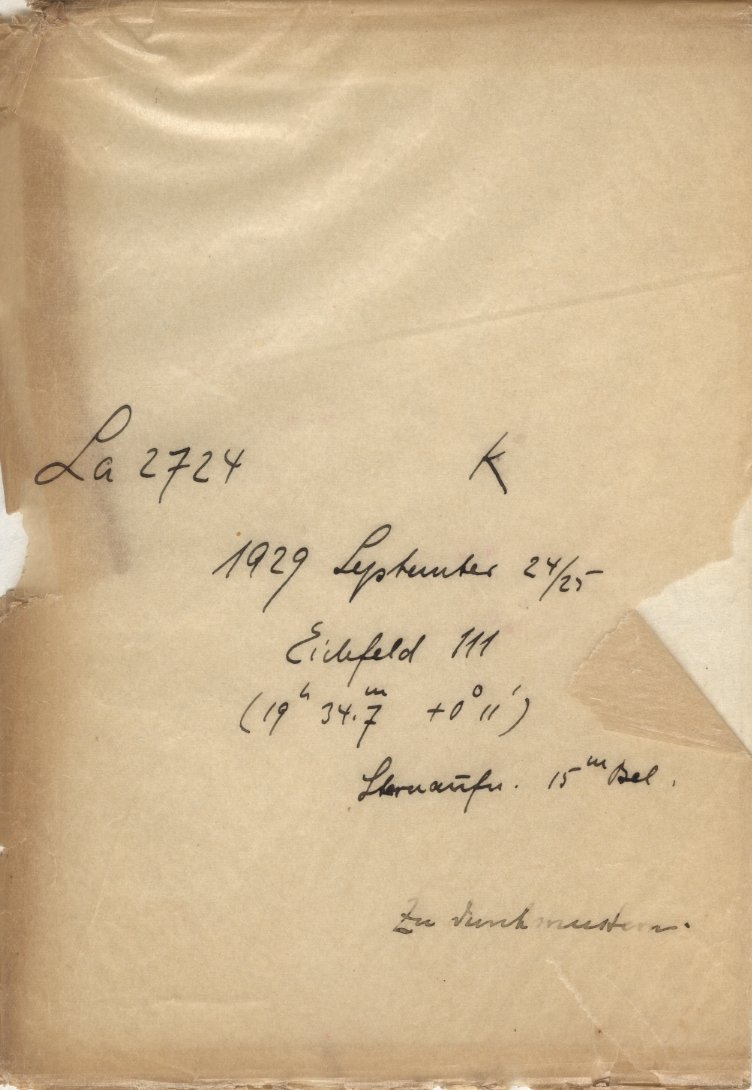 La 2724 K
1929 September 24/25
Eichfeld 111
(19ʰ 34.7ᵐ +0° 11')
Sternaufn. 15ᵐ Bel.
Zu durchmustern.